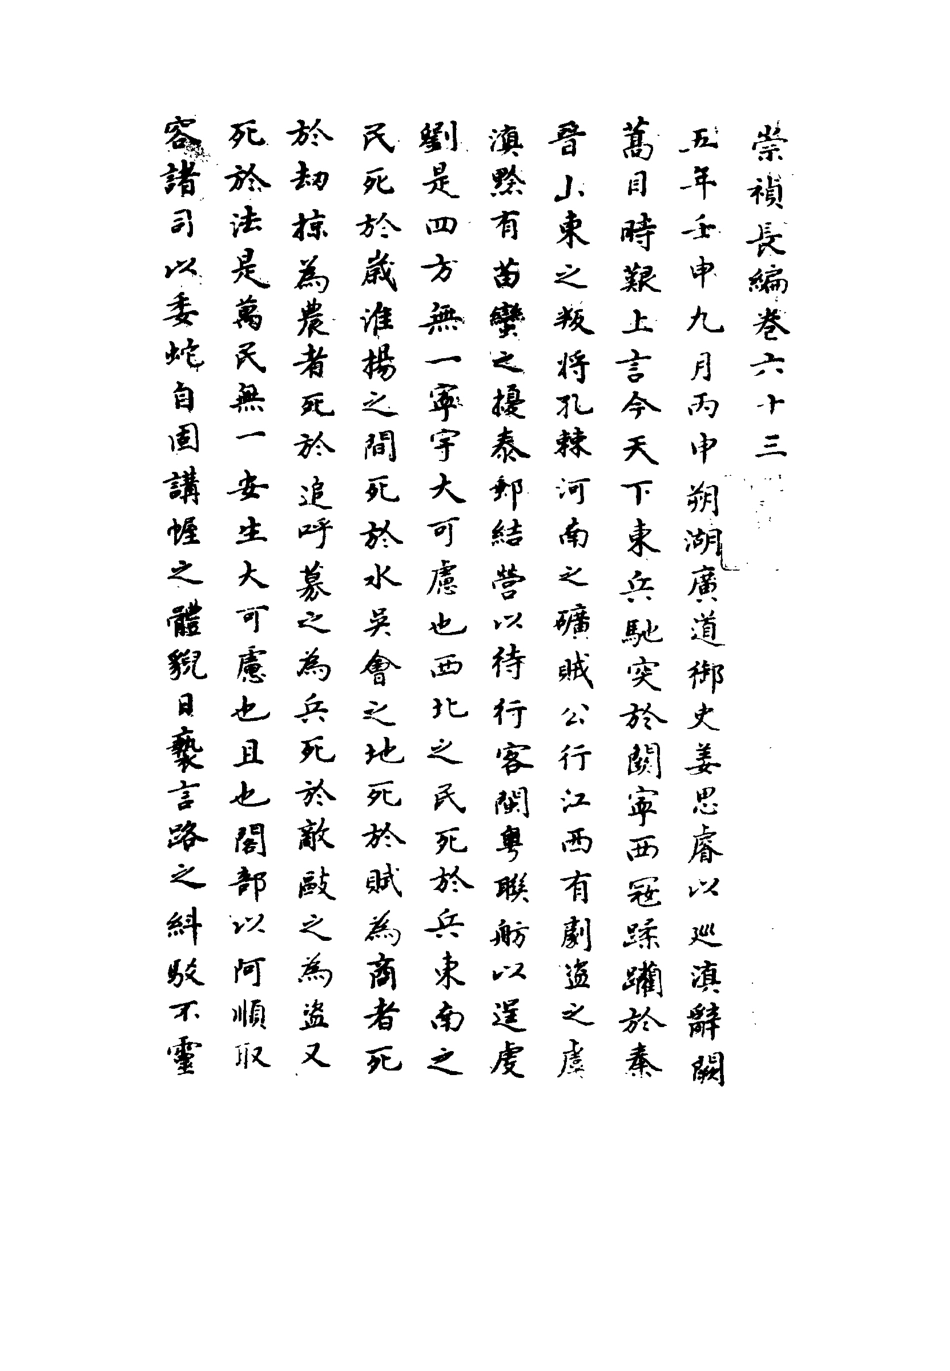 崇禎長編卷六十三
五年壬申九月丙申朔湖廣道御史姜思睿以巡滇辭闕
蒿目時艱上言今天下東兵馳突於關寧西冦蹂躪於秦
晉山東之叛將孔棘河南之礦賊公行江西有劇盜之虞
滇黔有苗蠻之擾秦郵結營以待行客閩粵聯舫以逞虔
劉是四方無一寧宇大可慮也西北之民死於兵東南之
民死於歲淮揚之間死於水吳會之地死於賦為商者死
於劫掠為農者死於追呼募之為兵死於敵敺之為盜又
死於法是萬民無一安生大可慮也且也閣部以阿順取
容諸司以委蛇自固講幄之體貌日褻言路之糾駮不靈